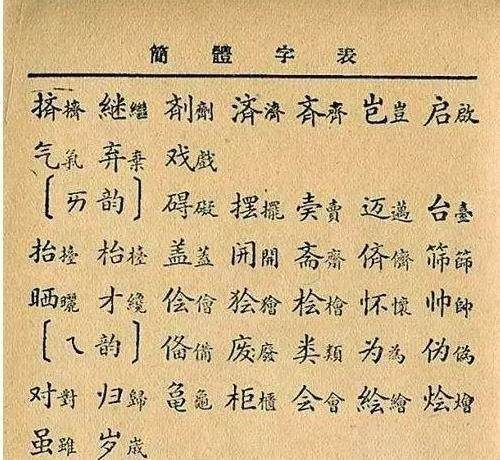 簡體字表
挤擠 継繼 剤劑 済濟 斉齊 岂豈 启啟
气氣 弃棄 戏戲
[ㄞ韵] 碍礙 摆擺 卖賣 迈邁 台臺
抬擡 枱檯 盖蓋 𫔭開 斋齋 侪儕 筛篩
晒曬 才纔 侩儈 狯獪 桧檜 怀懷 帅帥
[ㄟ韵] 俻備 废廢 类類 为為 伪偽
对對 归歸 亀龜 柜櫃 会會 絵繪 烩燴
虽雖 岁歲